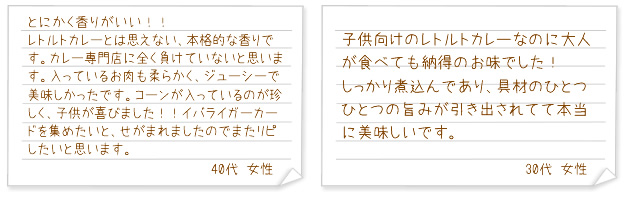 とにかく香りがいい！！
レトルトカレーとは思えない、本格的な香りで
す。カレー専門店に全く負けていないと思いま
す。入っているお肉も柔らかく、ジューシーで
美味しかったです。コーンが入っているのが珍
しく、子供が喜びました！！イバライガーカー
ドを集めたいと、せがまれましたのでまたリピ
したいと思います。
40代 女性
子供向けのレトルトカレーなのに大人
が食べても納得のお味でした！
しっかり煮込んであり、具材のひとつ
ひとつの旨みが引き出されてて本当
に美味しいです。
30代 女性